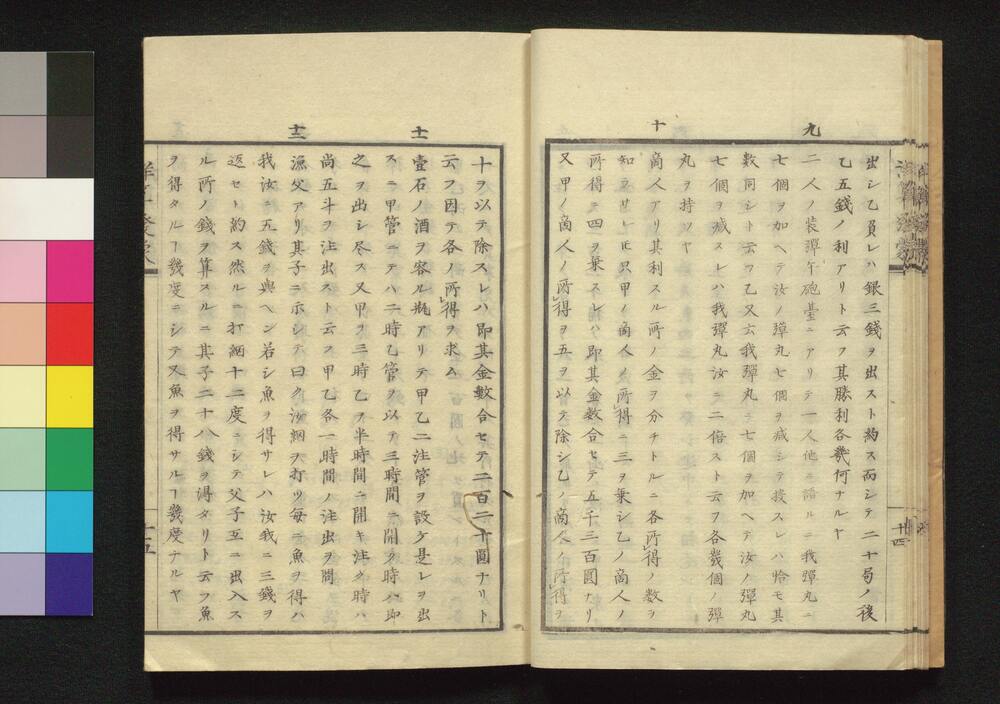 出シ乙負レハ銀三錢ヲ出スト約ス而シテ二十局ノ後
乙五錢ノ利アリト云フ其勝利各幾何ナルヤ
九
二人ノ裝彈午砲臺ニアリテ一人他ニ語ルニ我彈丸ニ
七個ヲ加ヘテ汝ノ彈丸七個ヲ减シテ挍スレハ恰モ其
數同シト云フ乙又云我彈丸ニ七個ヲ加ヘテ汝ノ彈丸
七個ヲ减スレハ我彈丸汝ノ二倍スト云フ各幾個ノ彈
丸ヲ持ツヤ
十
商人アリ其利スル所ノ金ヲ分チトルニ各所得ノ数ヲ
知ラサレ𪜈只甲ノ商人ノ所得ニ三ヲ乗シ乙ノ商人ノ
所得ニ四ヲ乗スレハ即其金數合セテ五千三百圓ナリ
又甲ノ商人ノ所得ヲ五ヲ以テ除シ乙ノ商人ノ所得ヲ
廿四
十ヲ以テ除スレハ即其金數合セテ二百二十圓ナリト
云フ因テ各ノ所得ヲ求ム
十一
壹石ノ酒ヲ容ル瓶アリテ甲乙二注管ヲ設ケ是レヲ出
スニ甲管ニテハ二時乙管ヲ以テ三時間ニ開ク時ハ即
之ヲ出シ尽ス又甲ヲ三時乙ヲ半時間ニ開キ注ク時ハ
尚五斗ヲ注出スト云フ甲乙各一時間ノ注出ヲ問
十二
漁父アリ其子ニ示シテ曰ク汝網ヲ打ツ毎ニ魚ヲ得ハ
我汝ニ五錢ヲ與ヘン若シ魚ヲ得サレハ汝我ニ三錢ヲ
返セト約ス然ルニ打網十二度ニシテ父子互ニ出入ス
ル所ノ錢ヲ算スルニ其子二十八錢ヲ得タリト云フ魚
ヲ得タルヿ幾度ニシテ又魚ヲ得サルヿ幾度ナルヤ